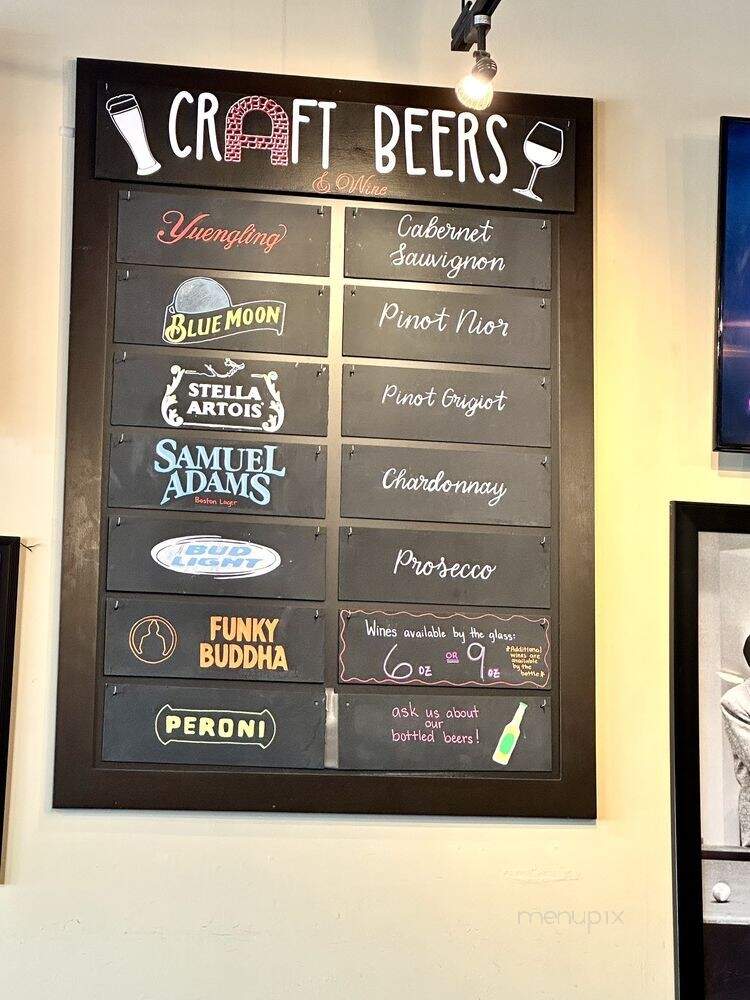 CRAFT BEERS
& Wine
Yuengling
BLUE MOON
STELLA
ARTOIS
SAMUEL
ADAMS
Boston Lager
BUD
LIGHT
FUNKY
BUDDHA
PERONI
Cabernet
Sauvignon
Pinot Nior
Pinot Grigiot
Chardonnay
Prosecco
Wines available by the glass:
6 OZ OR 9 OZ
*Additional
wines are
available
by the
bottle*
ask us about
our
bottled beers!
menupix